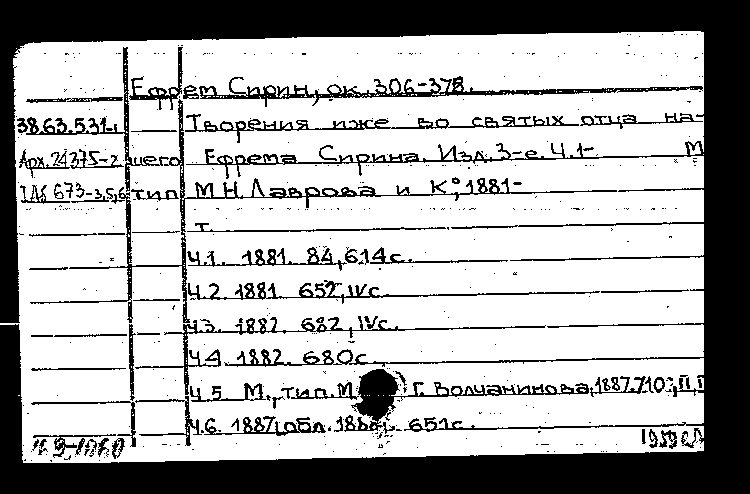 Ефрем Сирин, ок. 306-378.
38.63.531-1 Творения иже во святых отца на-
Арх.24375-2 шего Ефрема Сирина. Изд. 3-е. Ч.1- М
673-3,5,6 тип М.Н. Лаврова и К°, 1881-
т.
Ч.1. 1881. 84, 614 с.
Ч.2. 1881. 652, IV с.
Ч.3. 1882. 682, IV с.
Ч.4. 1882. 680 с
Ч 5 М., тип. М Г. Волчанинова, 1887. 710
Ч.6. 1887 обл. 651 с.